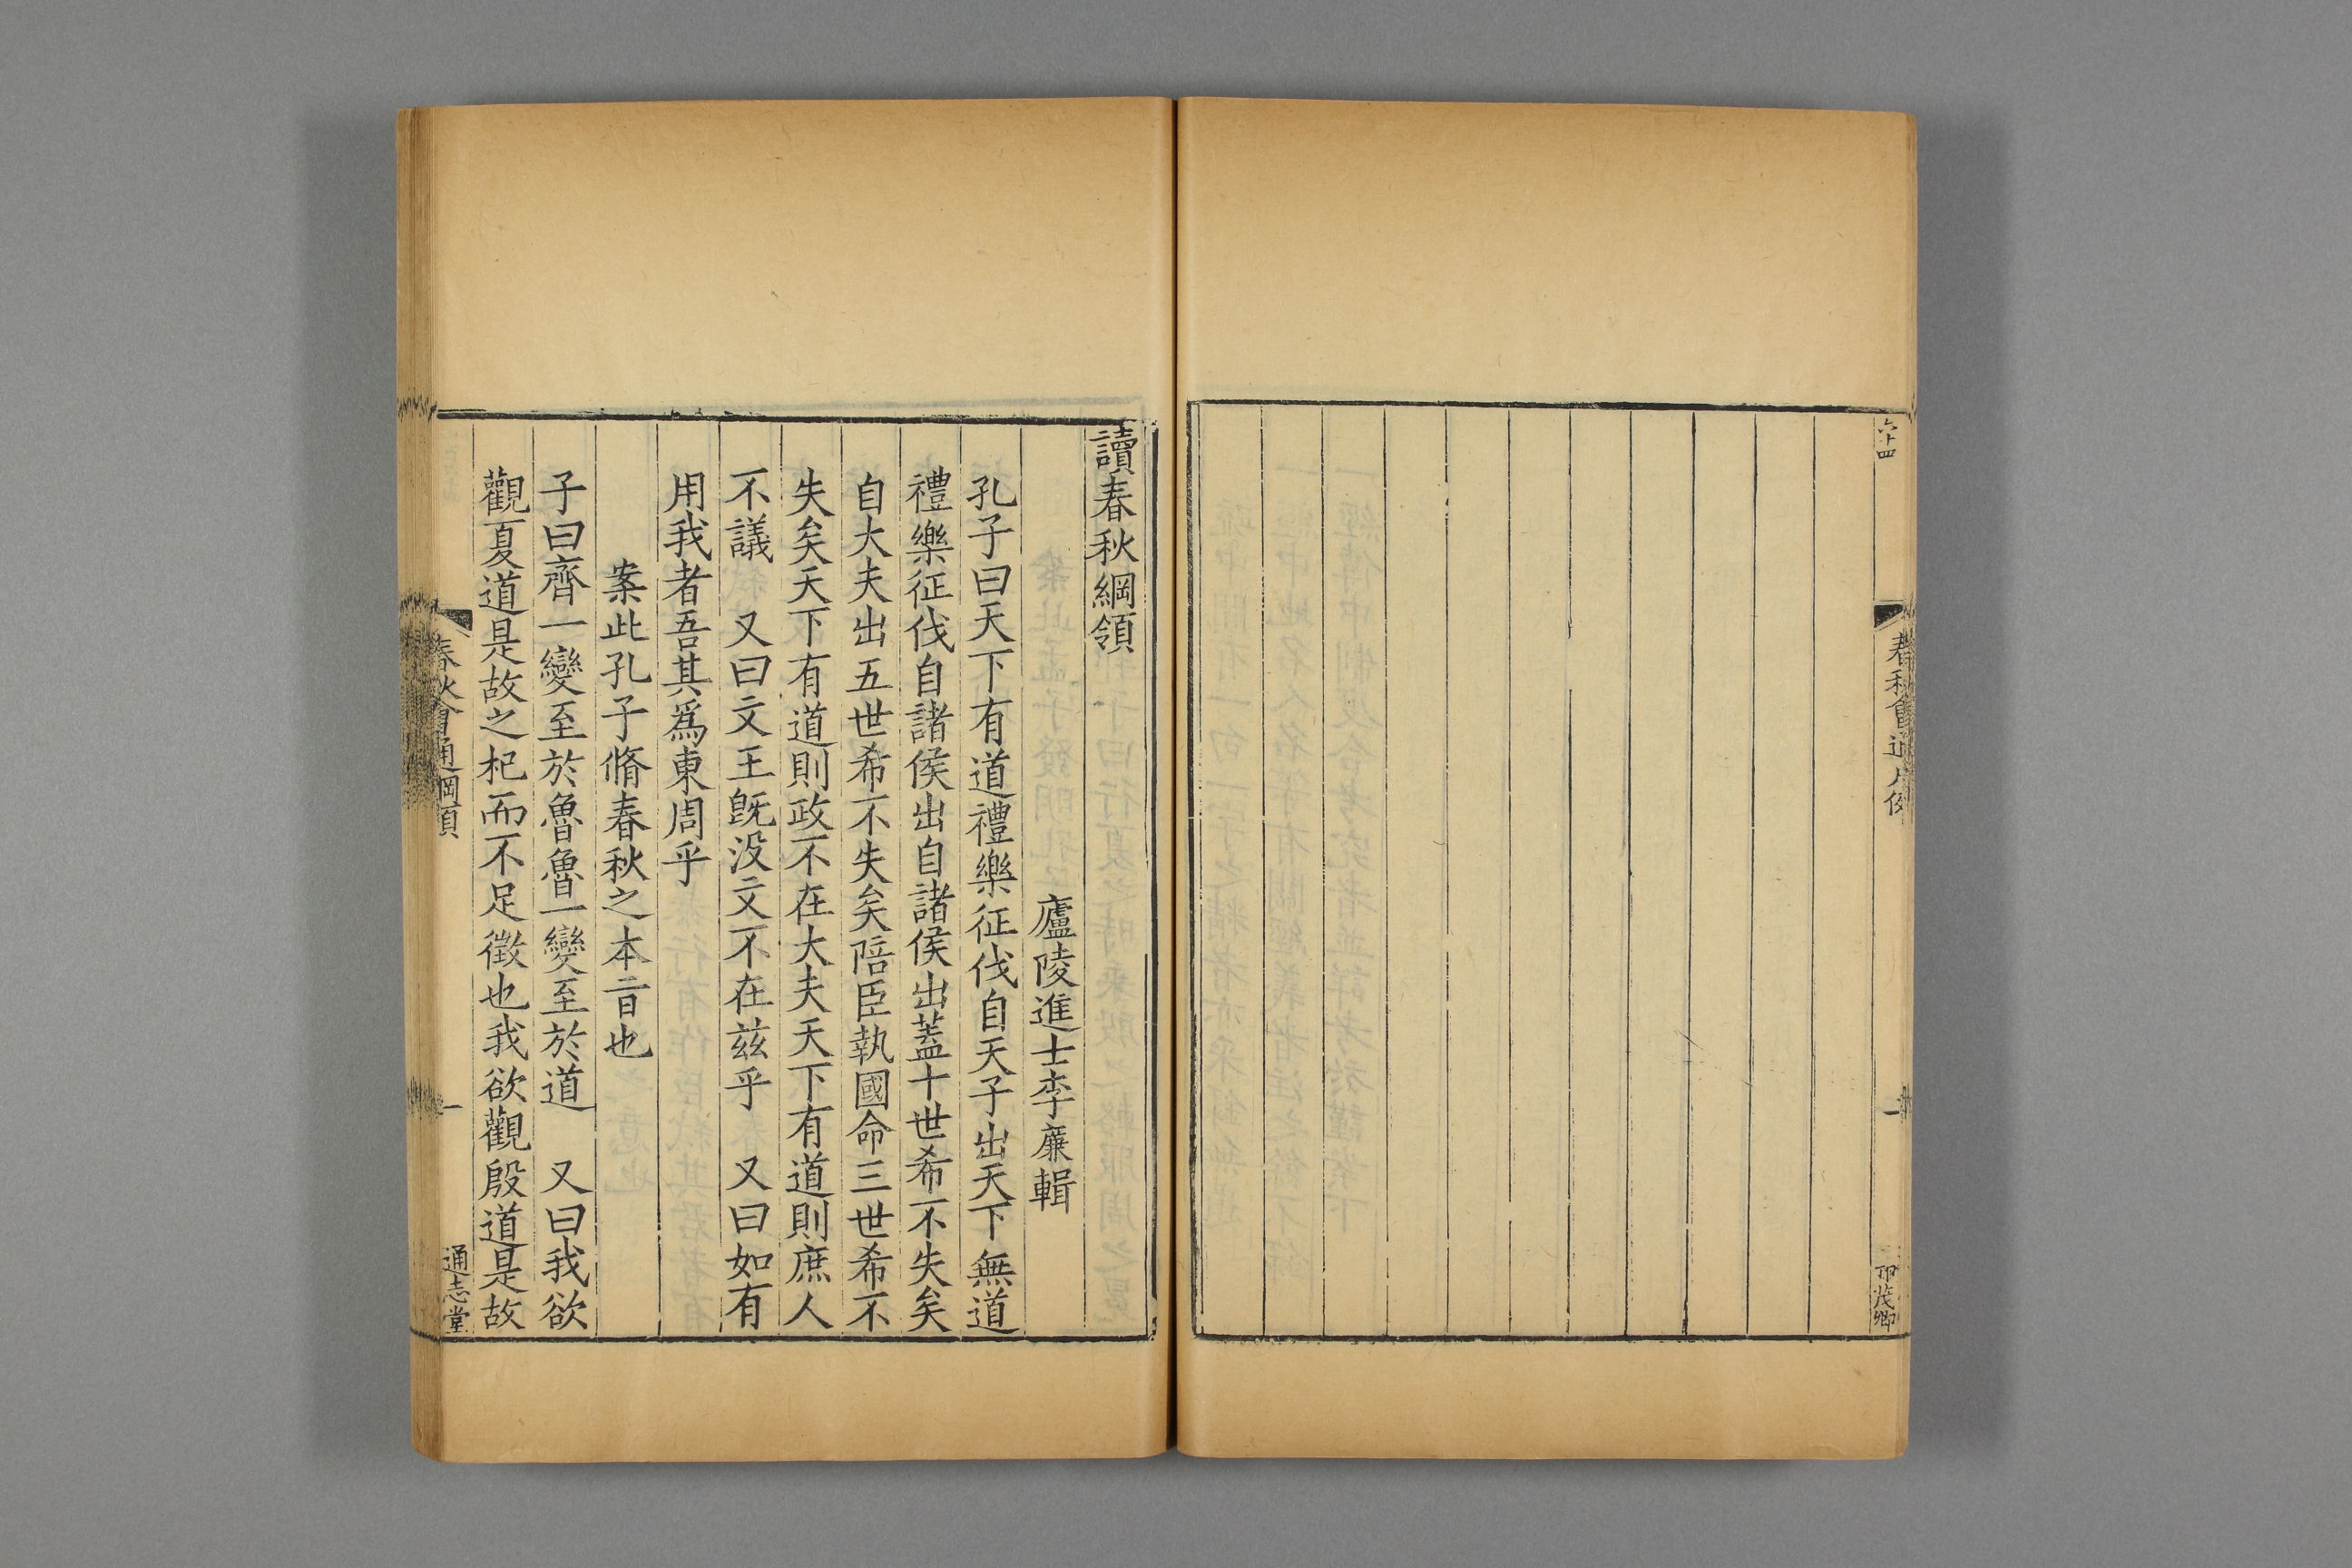 六十四
春秋會通凡例
一
卭茂卿
讀春秋綱領
廬陵進士李廉輯
孔子曰天下有道禮樂征伐自天子出天下無道
禮樂征伐自諸侯出自諸侯出蓋十世希不失矣
自大夫出五世希不失矣陪臣執國命三世希不
失矣天下有道則政不在大夫天下有道則庶人
不議　又曰文王旣没文不在兹乎　又曰如有
用我者吾其爲東周乎
案此孔子脩春秋之本旨也
子曰齊一變至於魯魯一變至於道　又曰我欲
觀夏道是故之杞而不足徵也我欲觀殷道是故
春秋會通綱領
一
通志堂